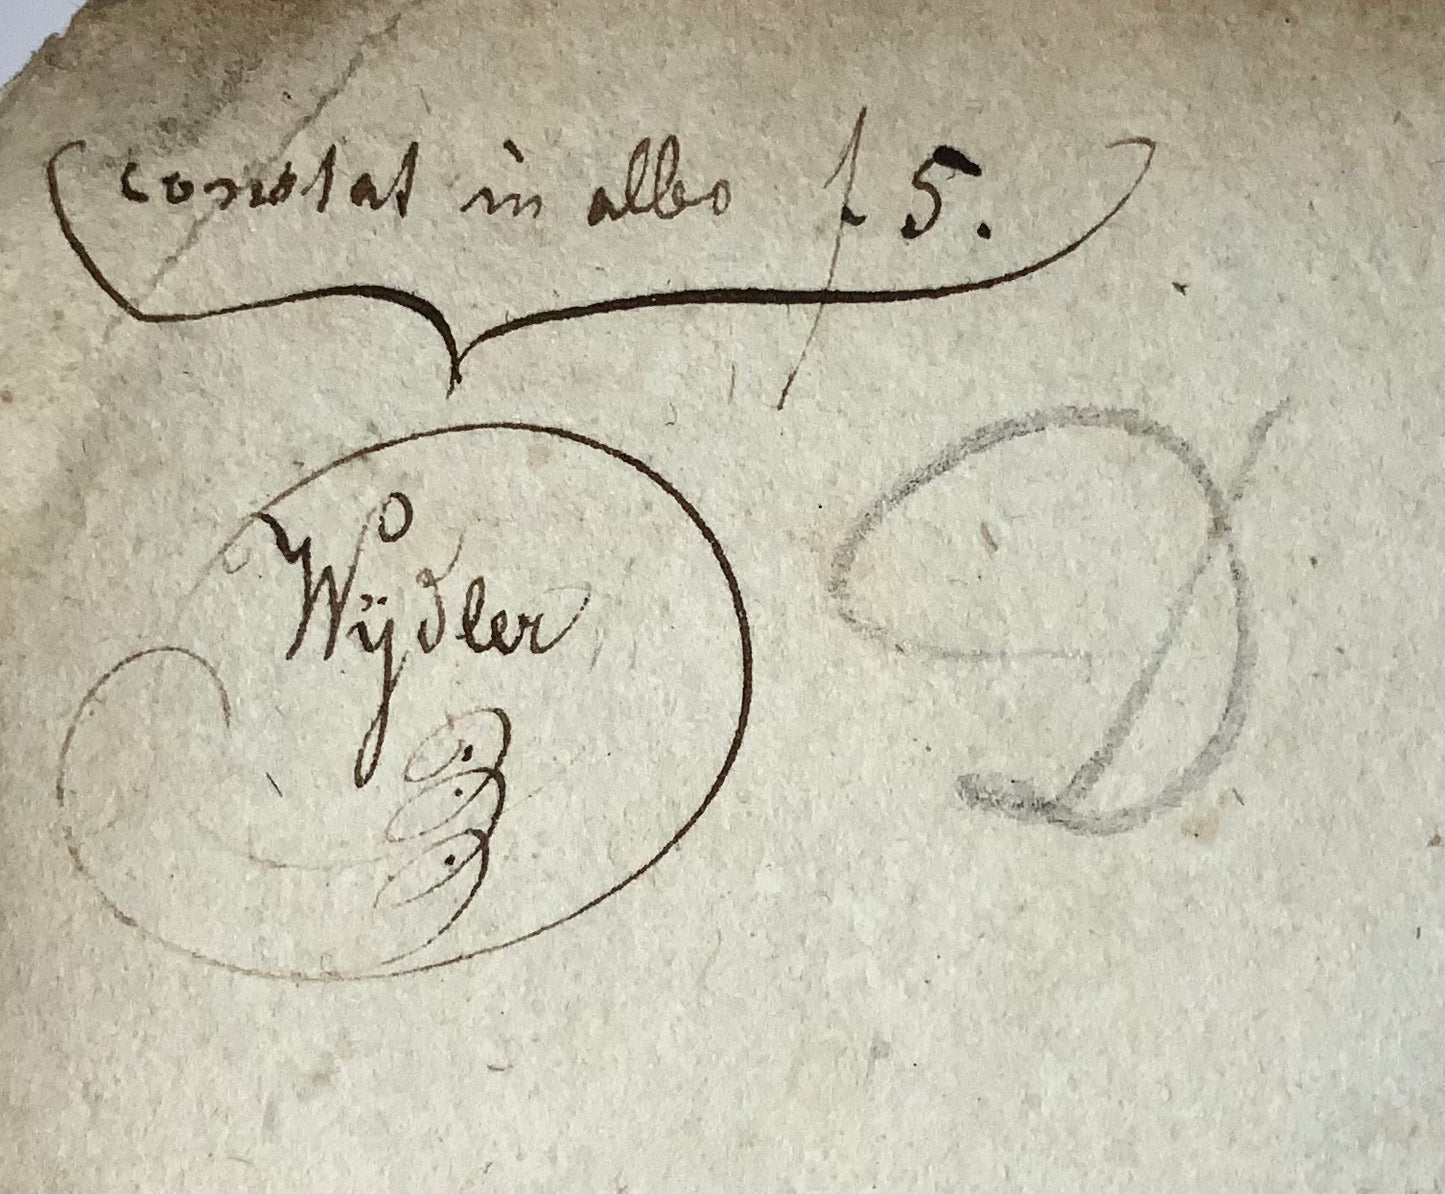 constat in albo f 5.
Wÿdler
D